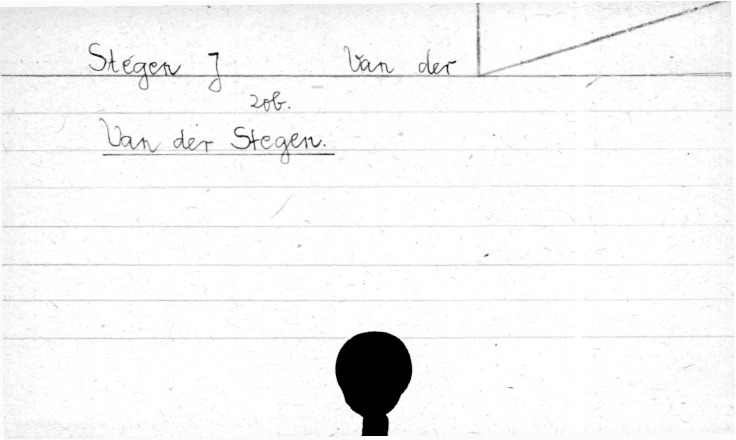 Stegen J Van der
zob.
Van der Stegen.